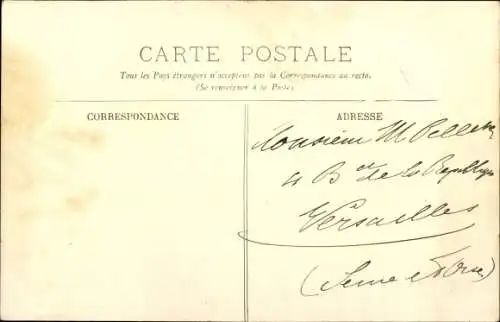 CARTE POSTALE
Tous les Pays étrangers n'acceptent pas la Correspondance au recto.
(Se renseigner à la Poste)
CORRESPONDANCE
ADRESSE
Monsieur M
Bd de la République
Versailles
(Seine et Oise)